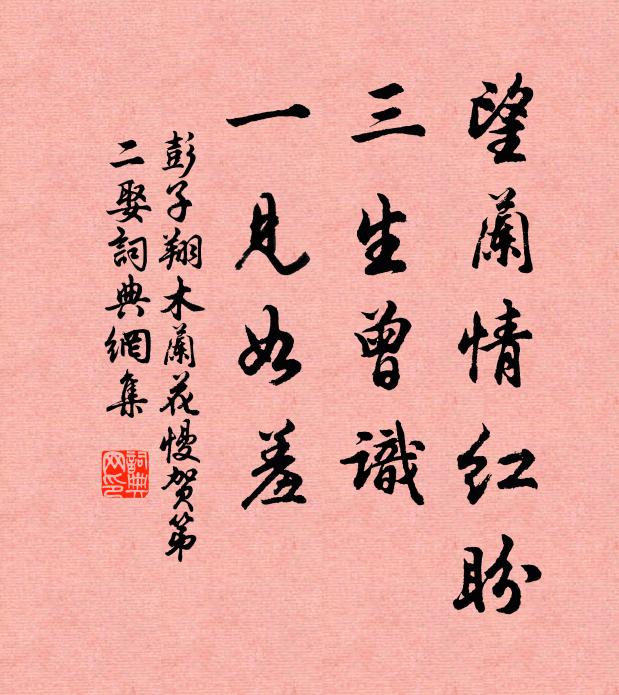 望蘭情紅盼
三生曾識
一見如羞
彭子翔木蘭花慢贺第
二娶詞典網集
詞典
网印